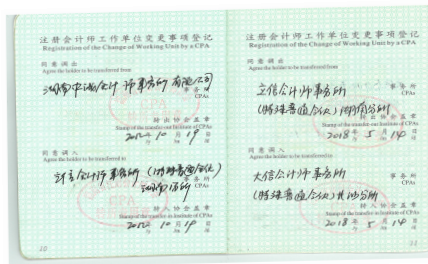 注册会计师工作单位变更事项登记
Registration of the Change of Working Unit by a CPA
同意调出
Agree the holder to be transferred from
会计师事务所有限公司
事务所
CPAs
转出协会盖章
Stamp of the transfer-out Institute of CPAs
10月19日
同意调入
Agree the holder to be transferred to
会计师事务所(特殊普通合伙)
事务所
CPAs
转入协会盖章
Stamp of the transfer-in Institute of CPAs
10月19日
10
注册会计师工作单位变更事项登记
Registration of the Change of Working Unit by a CPA
同意调出
Agree the holder to be transferred from
立信会计师事务所
事务所
CPAs
(特殊普通合伙)湖南分所
转出协会盖章
Stamp of the transfer-out Institute of CPAs
2018年5月14日
同意调入
Agree the holder to be transferred to
大信会计师事务所
事务所
CPAs
(特殊普通合伙)
转入协会盖章
Stamp of the transfer-in Institute of CPAs
2018年5月14日
11